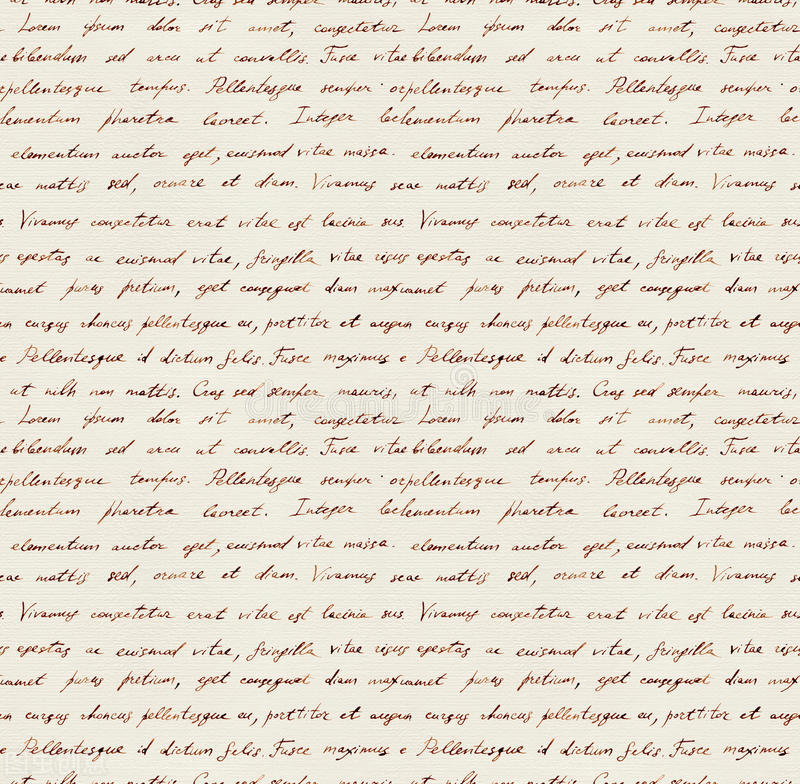 ut nilh non mattis. Cras sed semper mauris, ut nilh non mattis. Cras sed semper mauris,
Lorem ipsum dolor sit amet, consectetur Lorem ipsum dolor sit amet, consectetur
e bibendum sed arcu ut convallis. Fusce vitae bibendum sed arcu ut convallis. Fusce vitae
pellentesque tempus. Pellentesque semper orpellentesque tempus. Pellentesque semper o
lementum pharetra laoreet. Integer laclementum pharetra laoreet. Integer lac
elamentum auctor eget, euismod vitae massa. elamentum auctor eget, euismod vitae massa.
seac mattis sed, ornare et diam. Vivamus seac mattis sed, ornare et diam. Vivamus s
s. Vivamus consectetur erat vitae est lacinia sus. Vivamus consectetur erat vitae est lacinia sus
us egestas ac euismod vitae, fringilla vitae risus egestas ac euismod vitae, fringilla vitae ris
amet purus pretium, eget consequat diam maxuamet purus pretium, eget consequat diam max
n cursus rhoncus pellentesque eu, porttitor et augun cursus rhoncus pellentesque eu, porttitor et augu
e Pellentesque id dictum felis. Fusce maximus e Pellentesque id dictum felis. Fusce maximus
ut nilh non mattis. Cras sed semper mauris, ut nilh non mattis. Cras sed semper mauris,
Lorem ipsum dolor sit amet, consectetur Lorem ipsum dolor sit amet, consectetur
e bibendum sed arcu ut convallis. Fusce vitae bibendum sed arcu ut convallis. Fusce vitae
pellentesque tempus. Pellentesque semper orpellentesque tempus. Pellentesque semper o
lementum pharetra laoreet. Integer laclementum pharetra laoreet. Integer lac
elamentum auctor eget, euismod vitae massa. elamentum auctor eget, euismod vitae massa.
eac mattis sed, ornare et diam. Vivamus seac mattis sed, ornare et diam. Vivamus s
s. Vivamus consectetur erat vitae est lacinia sus. Vivamus consectetur erat vitae est lacinia sus.
us egestas ac euismod vitae, fringilla vitae risus egestas ac euismod vitae, fringilla vitae ris
amet purus pretium, eget consequat diam maxuamet purus pretium, eget consequat diam max
n cursus rhoncus pellentesque eu, porttitor et augun cursus rhoncus pellentesque eu, porttitor et augu
e Pellentesque id dictum felis. Fusce maximus e Pellentesque id dictum felis. Fusce maximus
ut nilh non mattis. Cras sed semper mauris, ut nilh non mattis. Cras sed semper mauris,
dreamstime